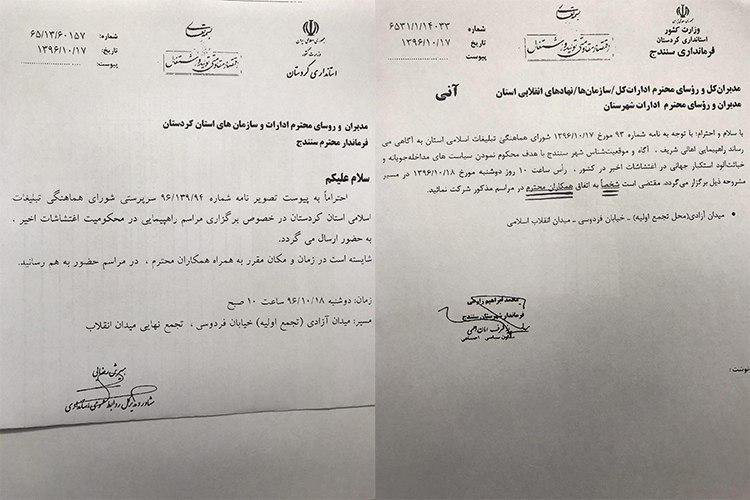 وزارت کشور
استانداری کردستان
فرمانداری سنندج
شماره : ۶۵۳۱/۱/۱۴۰۳۳
تاریخ : ۱۳۹۶/۱۰/۱۷
پیوست :
اقتصاد مقاومتی تولید و اشتغال
مدیران کل و رؤسای محترم ادارات کل/سازمان‌ها/نهادهای انقلابی استان
آنی
مدیران و رؤسای محترم ادارات شهرستان
با سلام و احترام؛ با توجه به نامه شماره ۹۳ مورخ ۱۳۹۶/۱۰/۱۷ شورای هماهنگی تبلیغات اسلامی استان به آگاهی می
رساند راهپیمایی اهالی شریف ، آگاه و موقعیت‌شناس شهر سنندج با هدف محکوم نمودن سیاست های مداخله‌جویانه و
خباثت‌آلود استکبار جهانی در اغتشاشات اخیر در کشور ، رأس ساعت ۱۰ روز دوشنبه مورخ ۱۳۹۶/۱۰/۱۸ در مسیر
مشروحه ذیل برگزار می‌گردد. مقتضی است شخصاً به اتفاق همکاران محترم در مراسم مذکور شرکت نمائید.
• میدان آزادی(محل تجمع اولیه) ـ خیابان فردوسی ـ میدان انقلاب اسلامی
محمد ابراهیم زارعی
فرماندار شهرستان سنندج
نوشت:
وزارت کشور
استانداری کردستان
شماره: ۶۵/۱۳/۶۰۱۵۷
تاریخ: ۱۳۹۶/۱۰/۱۷
پیوست:
اقتصاد مقاومتی تولید و اشتغال
مدیران و روسای محترم ادارات و سازمان های استان کردستان
فرماندار محترم سنندج
سلام علیکم
احتراماً به پیوست تصویر نامه شماره ۹۶/۱۳۹/۹۴ سرپرستی شورای هماهنگی تبلیغات
اسلامی استان کردستان در خصوص برگزاری مراسم راهپیمایی در محکومیت اغتشاشات اخیر ،
به حضور ارسال می گردد.
شایسته است در زمان و مکان مقرر به همراه همکاران محترم ، در مراسم حضور به هم رسانید.
زمان: دوشنبه ۹۶/۱۰/۱۸ ساعت ۱۰ صبح
مسیر: میدان آزادی (تجمع اولیه) خیابان فردوسی ، تجمع نهایی میدان انقلاب